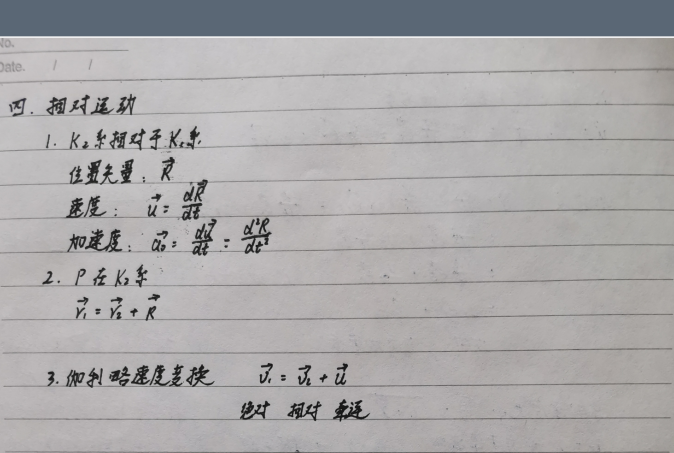 No.
Date. / /
四. 相对运动
1. K₂系相对于K₁系
位置矢量: $\vec{R}$
速度: $\vec{u} = \frac{d\vec{R}}{dt}$
加速度: $\vec{a_0} = \frac{d\vec{u}}{dt} = \frac{d^2R}{dt^2}$
2. P在K₂系
$\vec{r_1} = \vec{r_2} + \vec{R}$
3. 伽利略速度变换 $\vec{v_1} = \vec{v_2} + \vec{u}$
绝对 相对 牵连